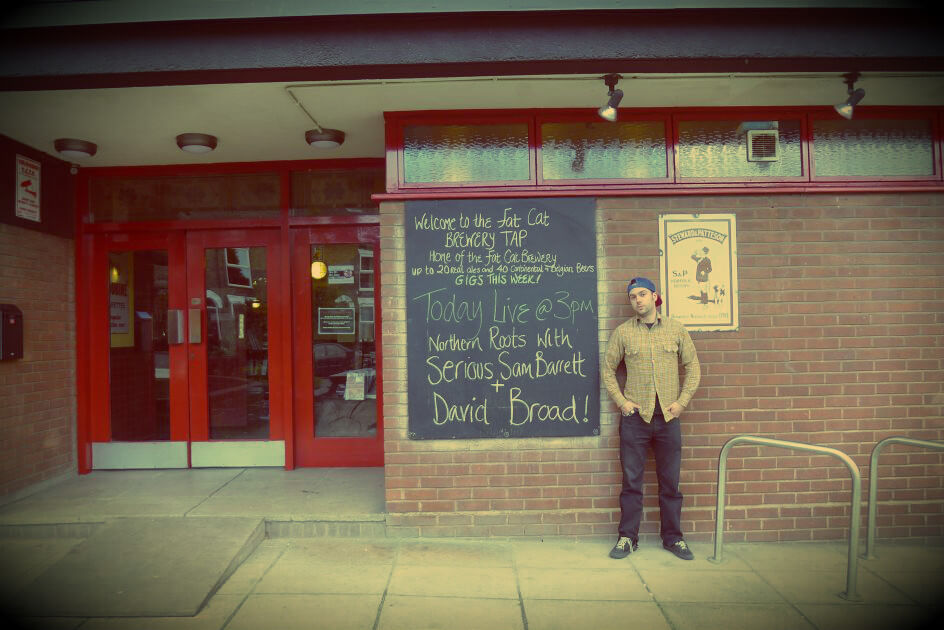 Welcome to the Fat Cat
BREWERY TAP
Home of the Fat Cat Brewery
up to 20 real ales and 40 Continental + Belgian Beers
GIGS THIS WEEK!
Today Live @ 3pm
Northern Roots With
Serious Sam Barrett
+
David Broad!
STEWARD & PATTESON
S&P